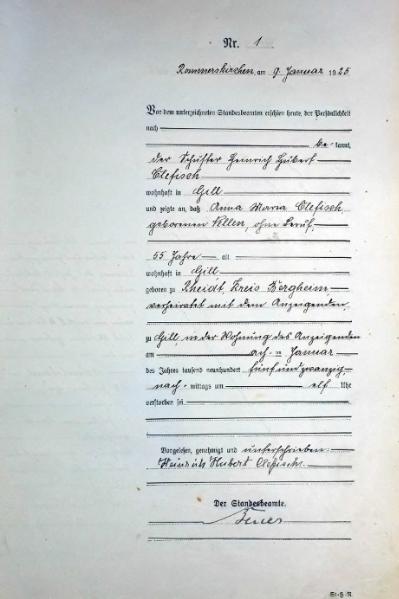 Nr. 1
Rommerskirchen, am 9. Januar 1925
Vor dem unterzeichneten Standesbeamten erschien heute, der Persönlichkeit
nach
be kannt,
der Schuster Heinrich Hubert
Clefisch
wohnhaft in Gill
und zeigte an, daß Anna Maria Clefisch
geborenen Vellen, ohne Beruf,
55 Jahre alt
wohnhaft in Gill
geboren zu Rheidt, Kreis Bergheim,
verheiratet mit dem Anzeigenden,
zu Gill, in der Wohnung des Anzeigenden
am Januar
des Jahres tausend neunhundert fünfundzwanzig
nach mittags um elf Uhr
verstorben sei.
Vorgelesen, genehmigt und unterschrieben
Heinrich Hubert Clefisch
Der Standesbeamte.
St-H-R.